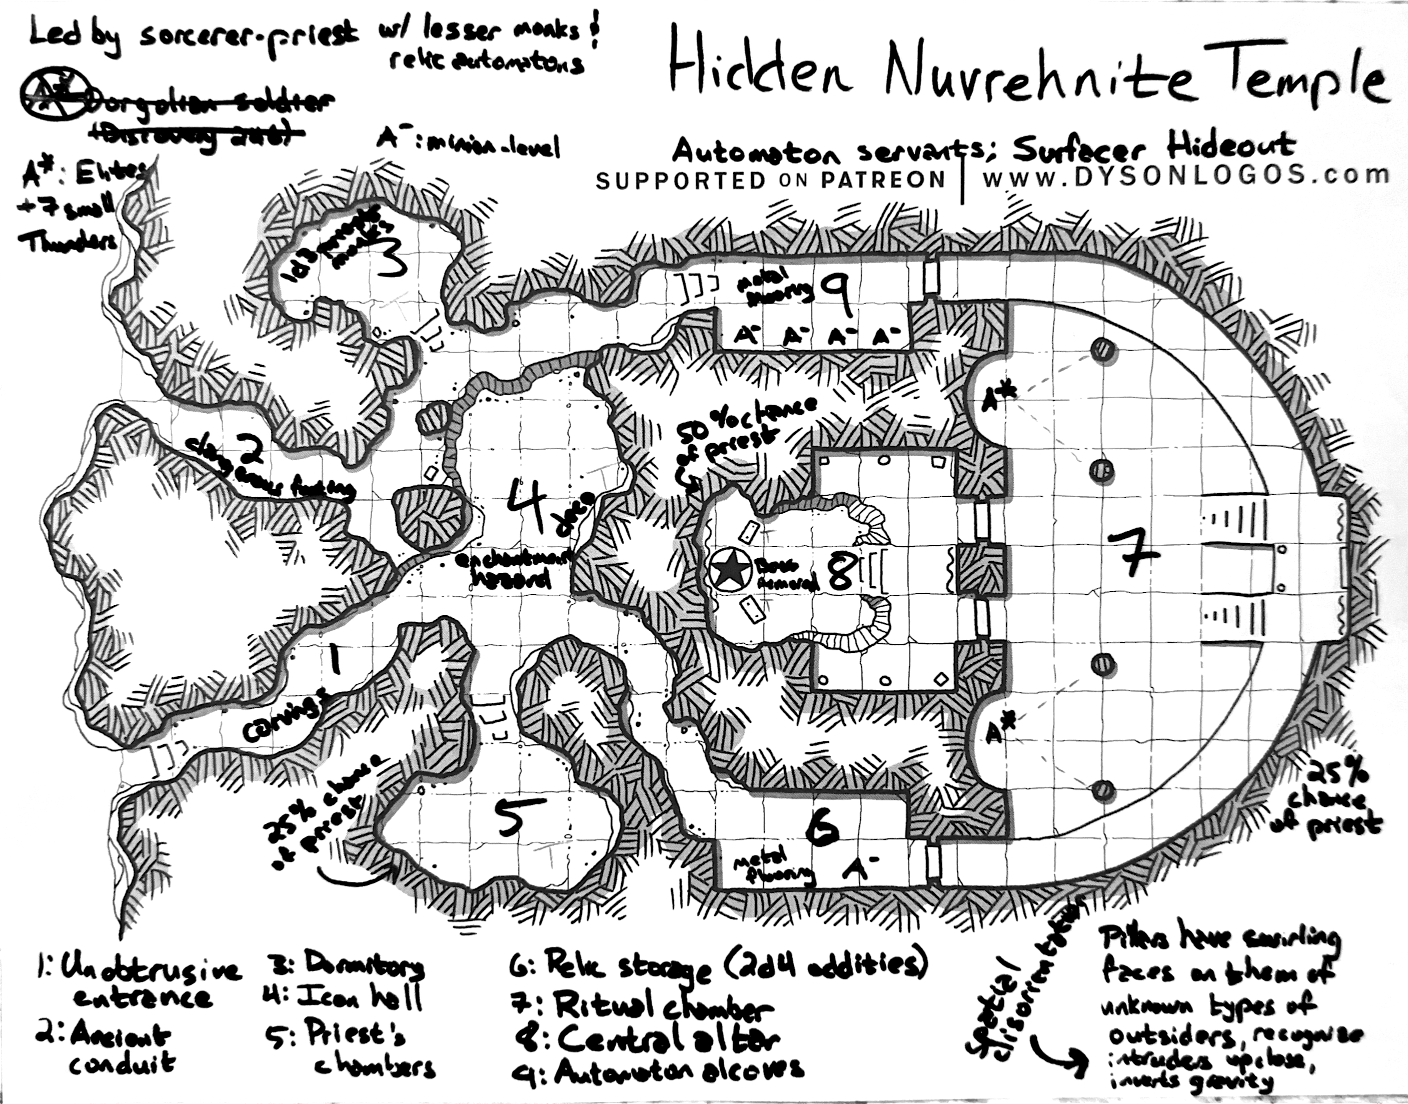 Led by sorcerer-priest w/ lesser monks &
relic automatons
Hidden Nuvrehnite Temple
Dorgolian soldier
(Discovery 246)
A⁻: minion-level
Automaton servants; Surfacer Hideout
SUPPORTED ON PATREON | www.DYSONLOGOS.com
A*: Elites
+7 small
Thunders
1d3
monks
3
metal
flooring 9
A⁻ A⁻ A⁻ A⁻
A*
50% chance
of priest
2
dangerous footing
4
enchantment
hazard
8
7
1
carvings
A*
25% chance
of priest
5
6
metal
flooring A⁻
25%
chance
of priest
Spatial
disorientation
Pillars have swirling
faces on them of
unknown types of
outsiders, recognize
intruders up close,
inverts gravity
1: Unobtrusive
entrance
2: Ancient
conduit
3: Dormitory
4: Icon hall
5: Priest's
chambers
6: Relic storage (2d4 oddities)
7: Ritual chamber
8: Central altar
9: Automaton alcoves